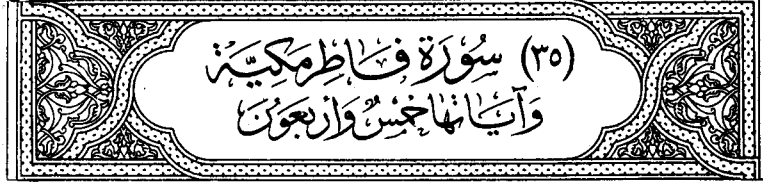 (٣٥) سُورَةُ فَاطِرٍ مَكِيَّةٌ
وَآيَاتُهَا خَمْسٌ وَأَرْبَعُونَ